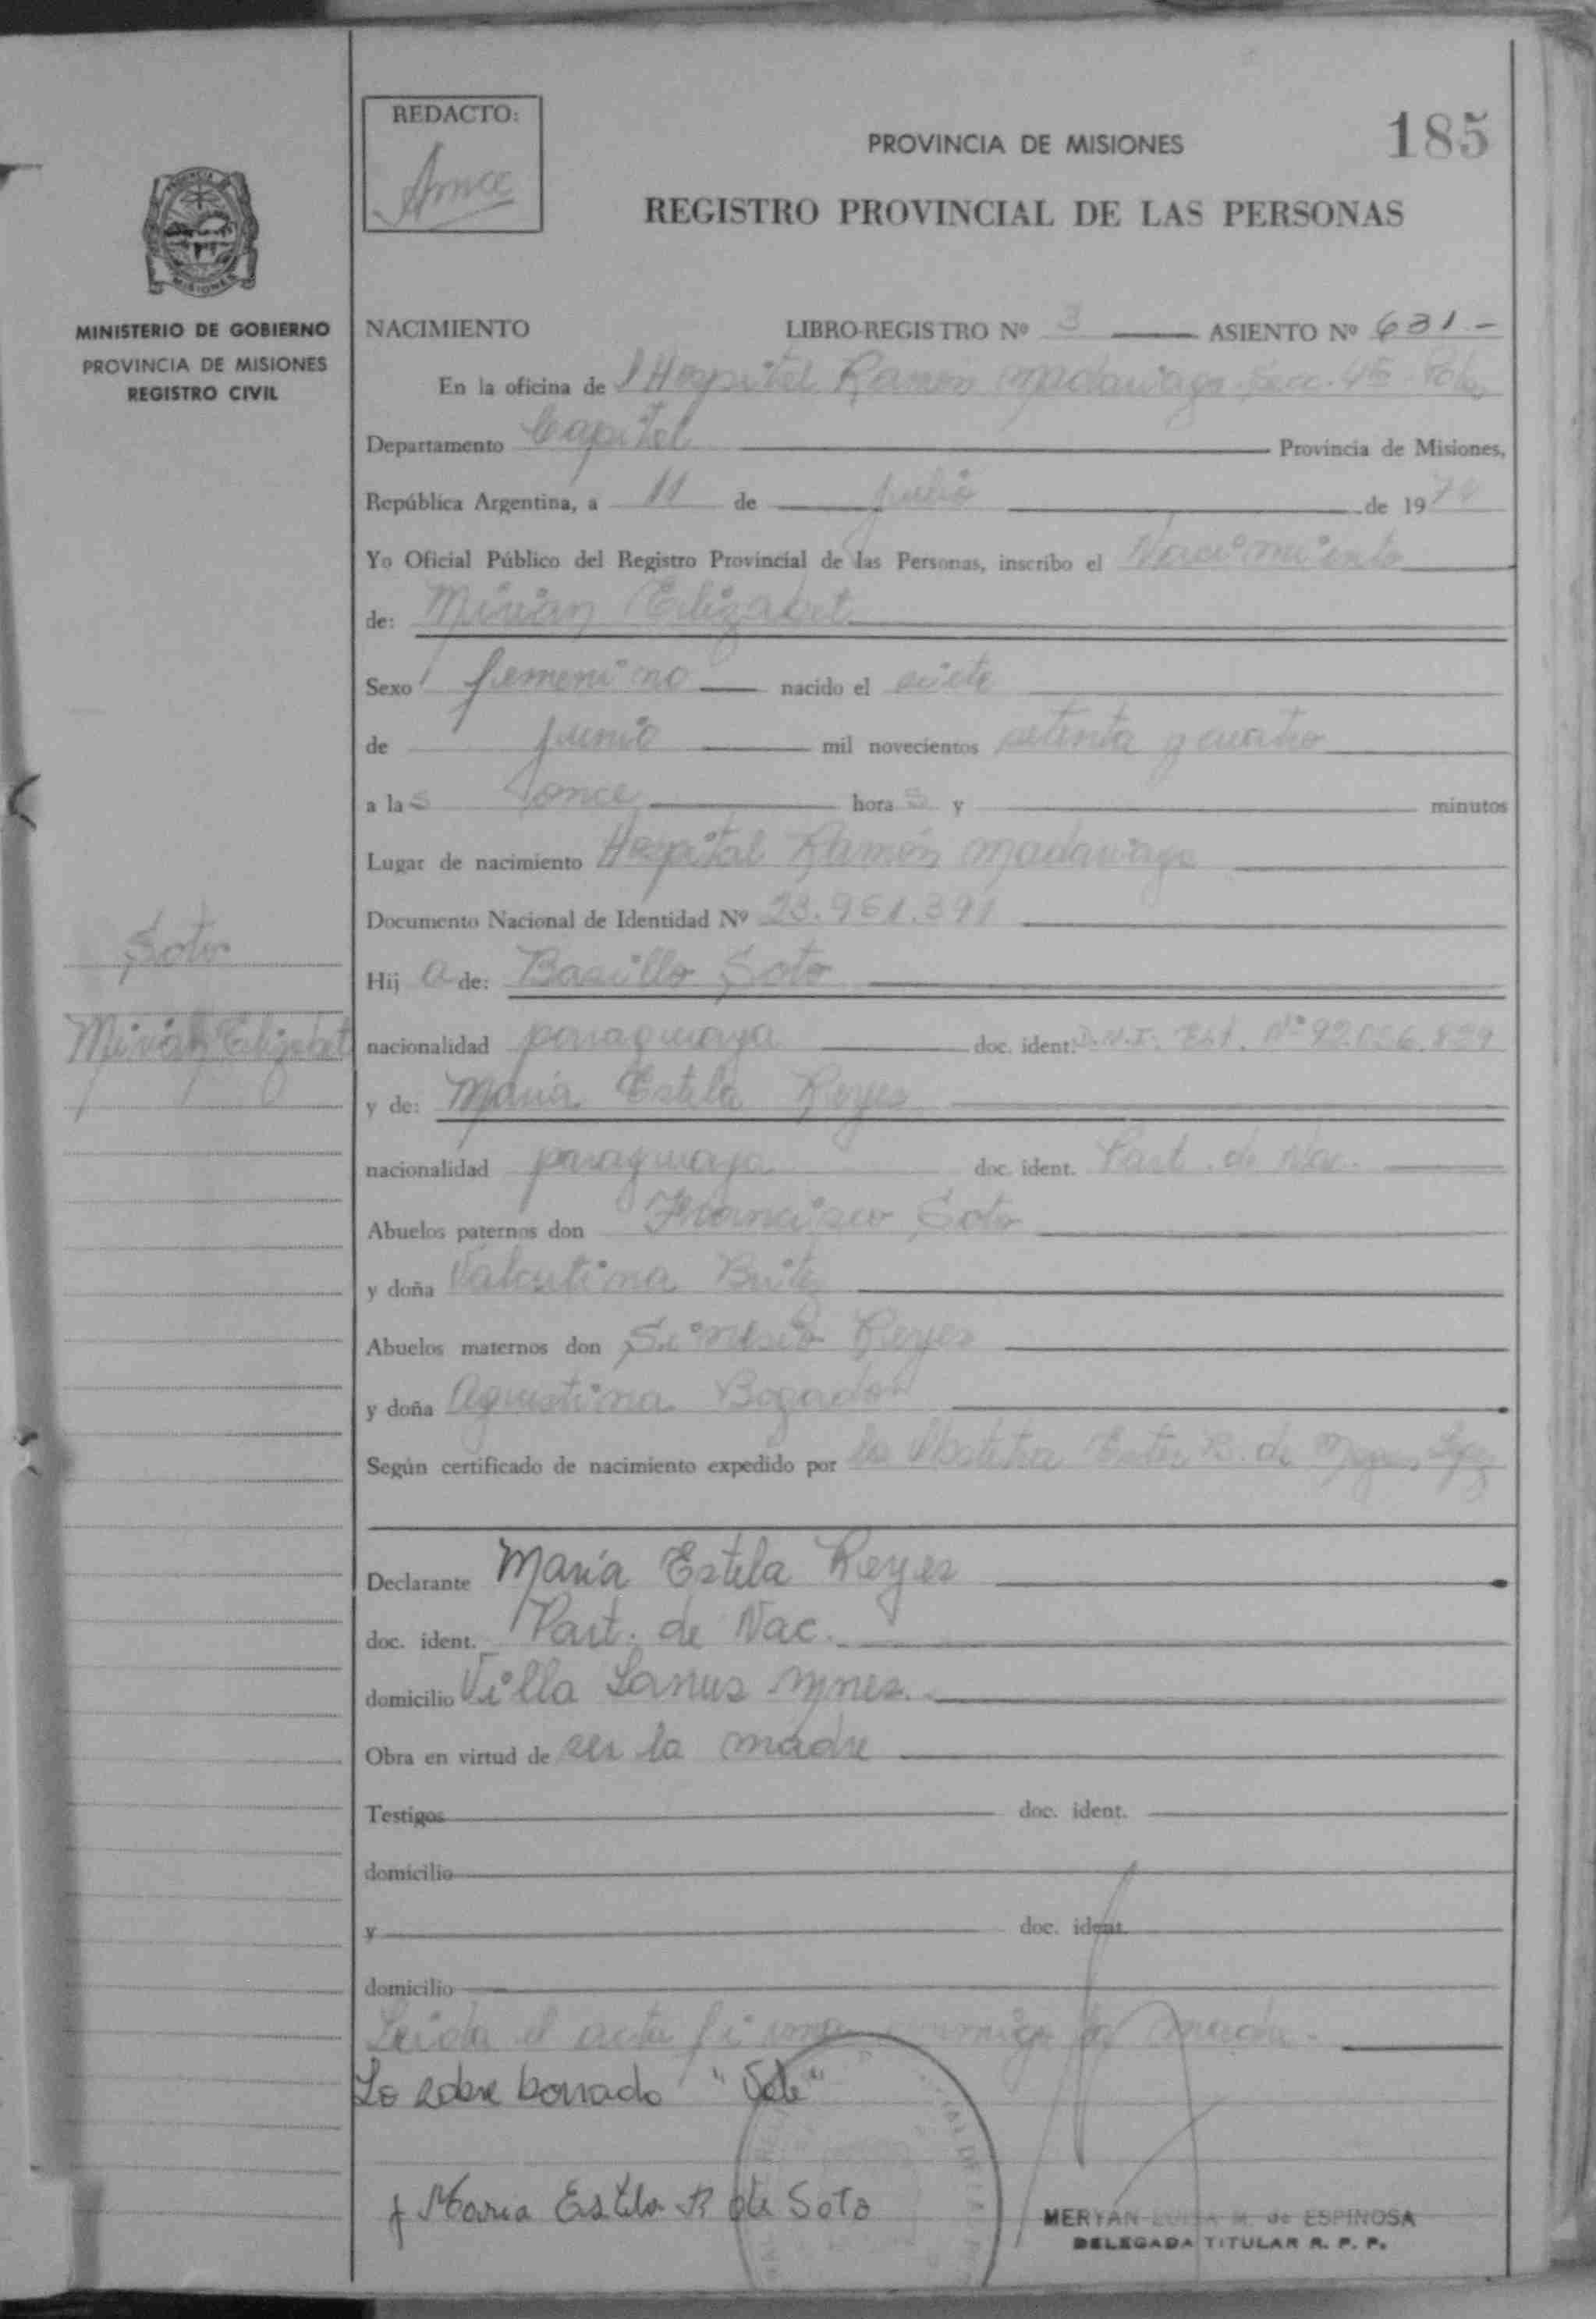 REDACTO:
PROVINCIA DE MISIONES
185
REGISTRO PROVINCIAL DE LAS PERSONAS
MISIONES
MINISTERIO DE GOBIERNO
PROVINCIA DE MISIONES
REGISTRO CIVIL
NACIMIENTO LIBRO-REGISTRO Nº 3 ASIENTO Nº 631-
En la oficina de l Hospital Ramon Madariaga Secc. 4ta
Departamento Capital Provincia de Misiones,
República Argentina, a 11 de julio de 1974
Yo Oficial Público del Registro Provincial de las Personas, inscribo el Nacimiento
de: Mirian Elizabet
Sexo femenino nacido el siete
de junio mil novecientos setenta y cuatro
a las once horas y minutos
Lugar de nacimiento Hospital Ramón Madariaga
Documento Nacional de Identidad Nº 23.951.391
Soto
Hija de: Basillo Soto
Mirian Elizabet
nacionalidad paraguaya doc. ident. D.N.I. Ext. Nº 92.036.829
y de: María Estela Reyes
nacionalidad paraguaya doc. ident. Part. de Nac.
Abuelos paternos don Francisco Soto
y doña Valentina Brite
Abuelos maternos don Reyes
y doña Agustina Bogado
Según certificado de nacimiento expedido por la Obstetra Ester B. de
Declarante María Estela Reyes
doc. ident. Part. de Nac.
domicilio Villa Lanus Mnes.
Obra en virtud de ser la madre
Testigos doc. ident.
domicilio
y doc. ident.
domicilio
Leida el acta firma conmigo la madre.
Lo sobre borrado "Soto"
María Estela R de Soto
MERYAN LUISA M. de ESPINOSA
DELEGADA TITULAR R. P. P.